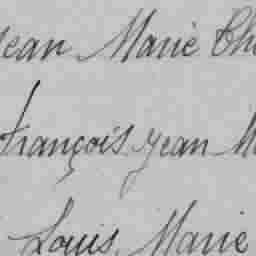 Jean Marie Ch
François Jean M
Louis, Marie